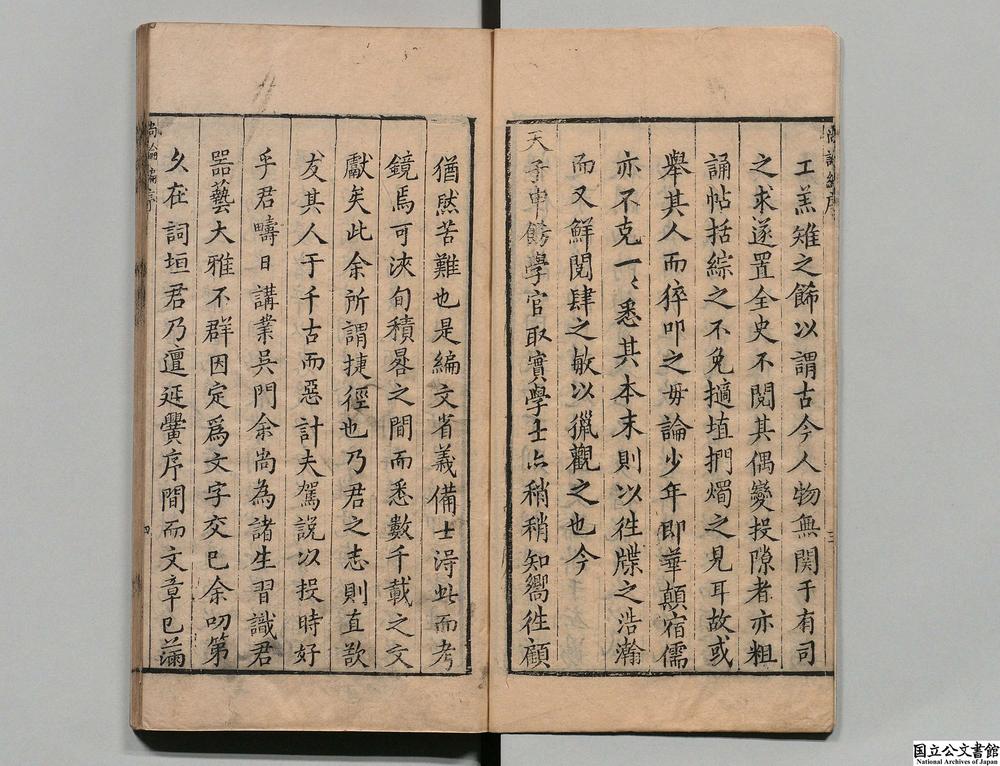 工羔雉之飾以謂古今人物無関于有司
之求遂置全史不閱其偶變投隙者亦粗
誦帖括綜之不免擿埴捫燭之見耳故或
舉其人而猝叩之毋論少年即華顛宿儒
亦不克一〻悉其本末則以徃牒之浩瀚
而又鮮閱肆之敏以獵觀之也今
天子申飭學官取實學士亦稍稍知嚮徃顧
三
猶然苦難也是編文省義備士得此而考
鏡焉可浹旬積晷之間而悉數千載之文
獻矣此余所謂捷徑也乃君之志則直歆
友其人于千古而惡計夫駕說以投時好
乎君疇日講業吳門余尚為諸生習識君
噐藝大雅不群因定爲文字交已余叨第
久在詞垣君乃邅延黌序間而文章已滿
尚論編序
四
国立公文書館
National Archives of Japan